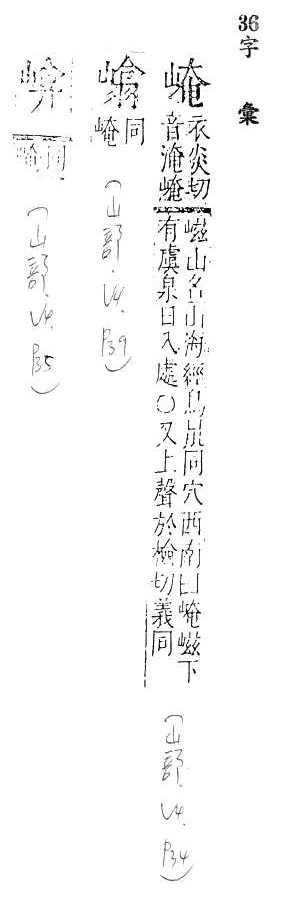 36字 彙
崦
衣炎切
音淹崦
嵫山名山海經鳥鼠同穴西南曰崦嵫下
有虞泉日入處〇又上聲於檢切義同
(山部.V4.P34)
同
崦
(山部.V4.P39)
同
崦
(山部.V4.P35)